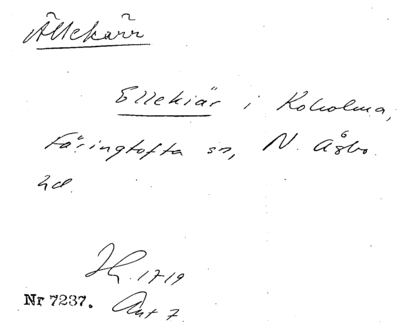 Ällekärr
Ellekiär i Koholma,
Färingtofta sn, N. Åsbo
hd.
1719
Nr 7237. Ant 7